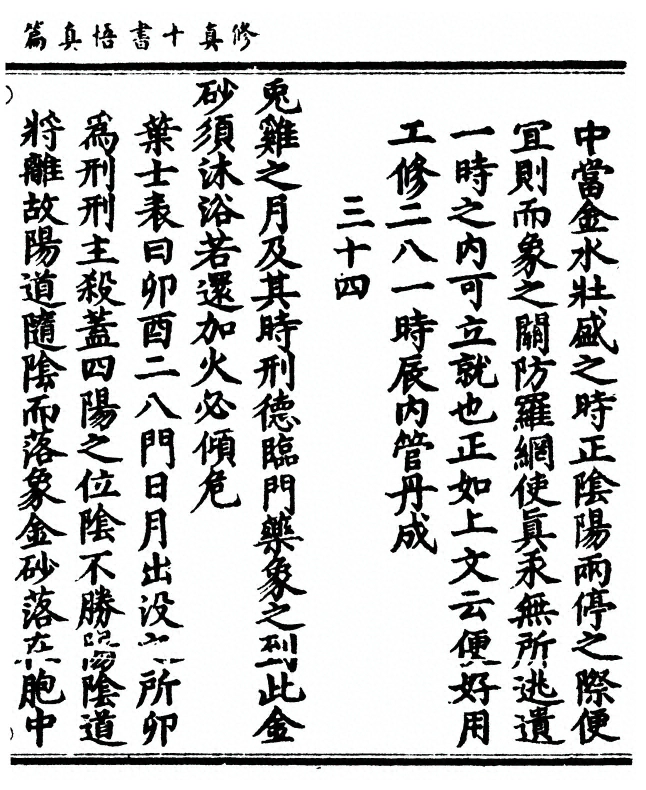 修真十書悟真篇
中當金水壯盛之時正陰陽兩停之際便
宜則而象之關防羅網使真汞無所逃遺
一時之內可立就也正如上文云便好用
工修二八一時辰內管丹成
三十四
兎雞之月及其時刑德臨門藥象之到此金
砂須沐浴若還加火必傾危
葉士表曰卯酉二八門日月出沒所卯
為刑刑主殺蓋四陽之位陰不勝陽陰道
將離故陽道隨陰而落象金砂落在胞中